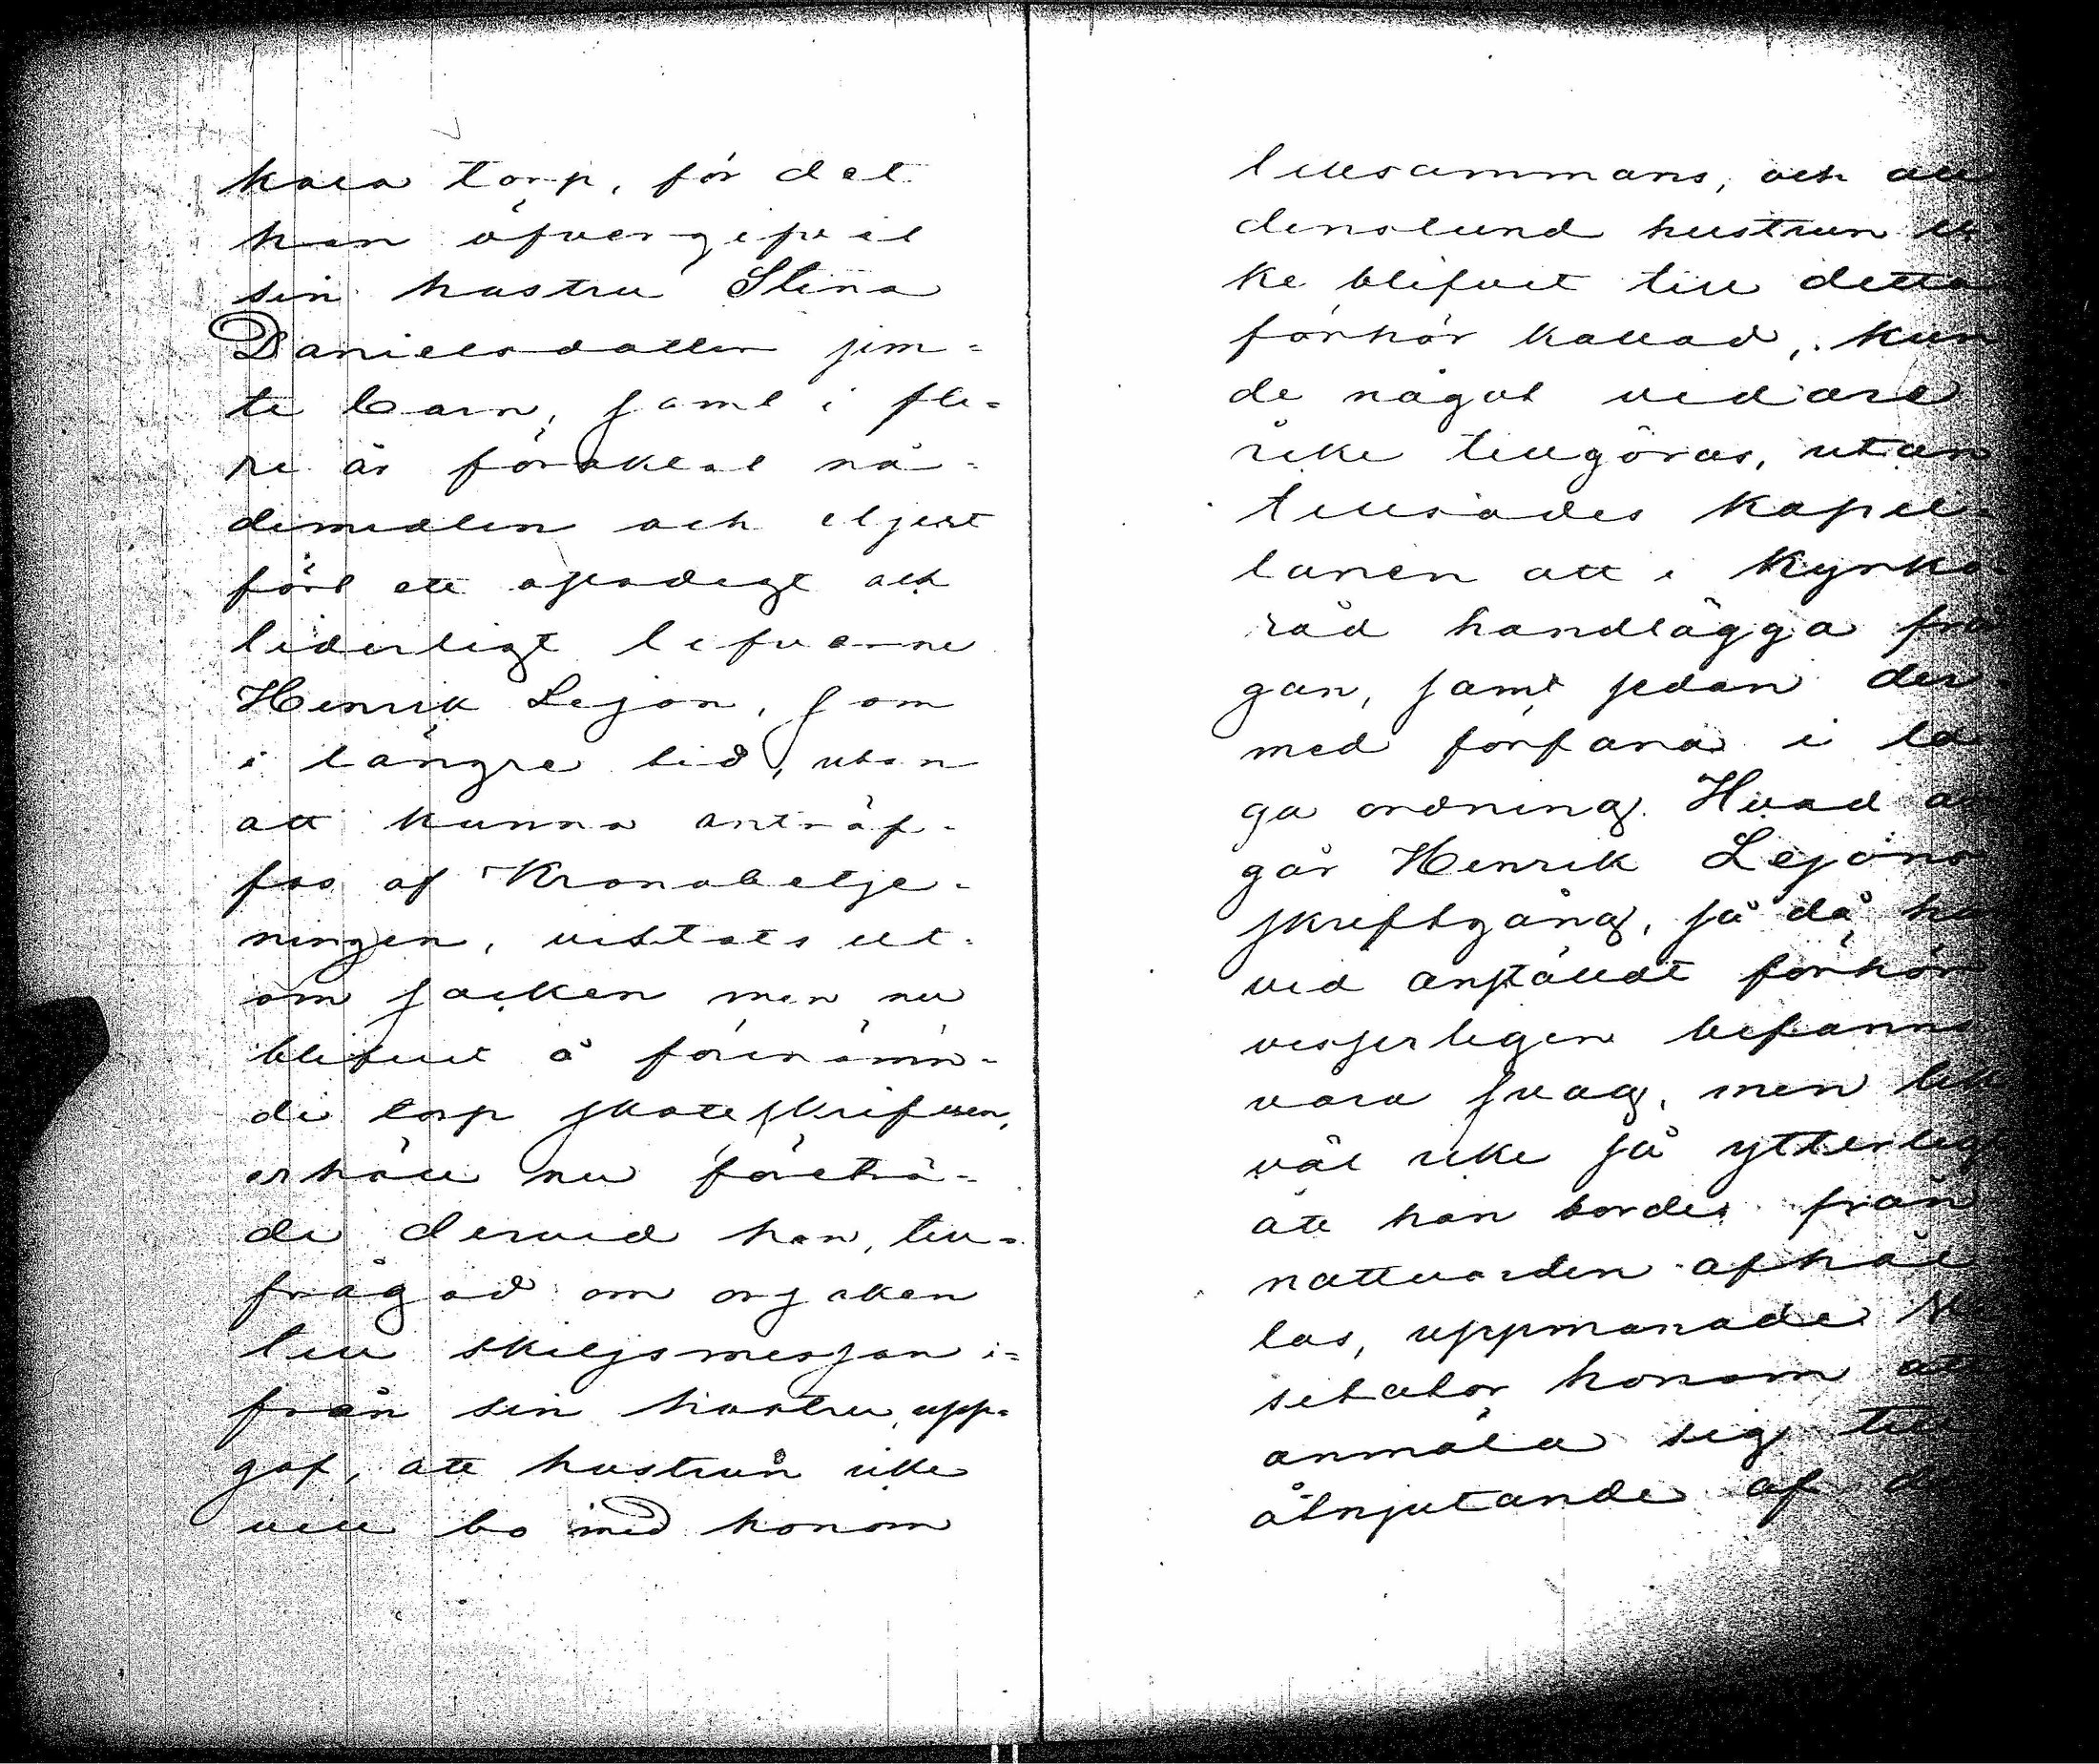 kara torp, för det
han öfvergifvit
sin hustru Stina
Danielsdotter jem=
te barn, samt i fle=
re år försakat nå=
demedlen och eljest
fört ett oskadligt och
liderligt lefverne
Henrik Lejon, som
i längre tid, utan
att kunna anträf-
fas af Kronobetje-
ningen, vistats ut-
om socken men nu
blifvit å förenämn-
de torp skatteskrifven,
erhöll nu företrä-
de dervid han, till-
frågad om orsaken
till skiljsmessan i=
från sin hustru, upp=
gaf, att hustrun icke
vill bo med honom
tillsammans, och all
denstund hustrun ic
ke blifvit till detta
förhör kallad, kun
de något vidare
icke tillgöras, utan
tillsades kapel-
lanen att i Kyrko-
råd handlägga frå
gan, samt sedan der-
med förfara i la
ga ordning. Hvad an
går Henrik Lejons
skriftgång, så då han
vid anställdt förhör
visserligen befanns
vara svag, men lik
väl icke så ytterligt
att han borde från
nattvarden afhål
las, uppmanade Vi
sitator honom att
anmäla sig till
åtnjutande af de